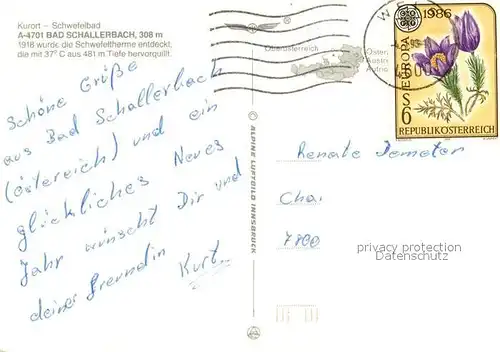 Kurort – Schwefelbad
A-4701 BAD SCHALLERBACH, 308 m
1918 wurde die Schwefeltherme entdeckt,
die mit 37° C aus 481 m Tiefe hervorquillt.
Schöne Grüße
aus Bad Schallerbach
(Österreich) und ein
glückliches Neues
Jahr wünscht Dir und
deiner Freundin Kurt
© ALPINE LUFTBILD INNSBRUCK
Oberösterreich
1986
EUROPA
S
6
REPUBLIK ÖSTERREICH
Renate Demeter
7800
privacy protection